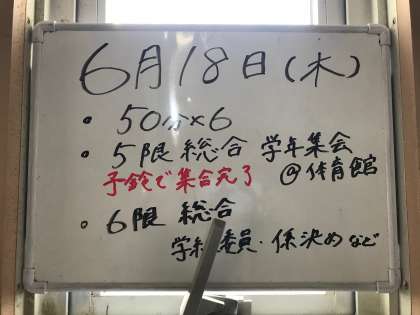 6月18日(木)
・50分×6
・5限 総合 学年集会
予鈴で集合完了 @体育館
・6限 総合
学級委員・係決めなど